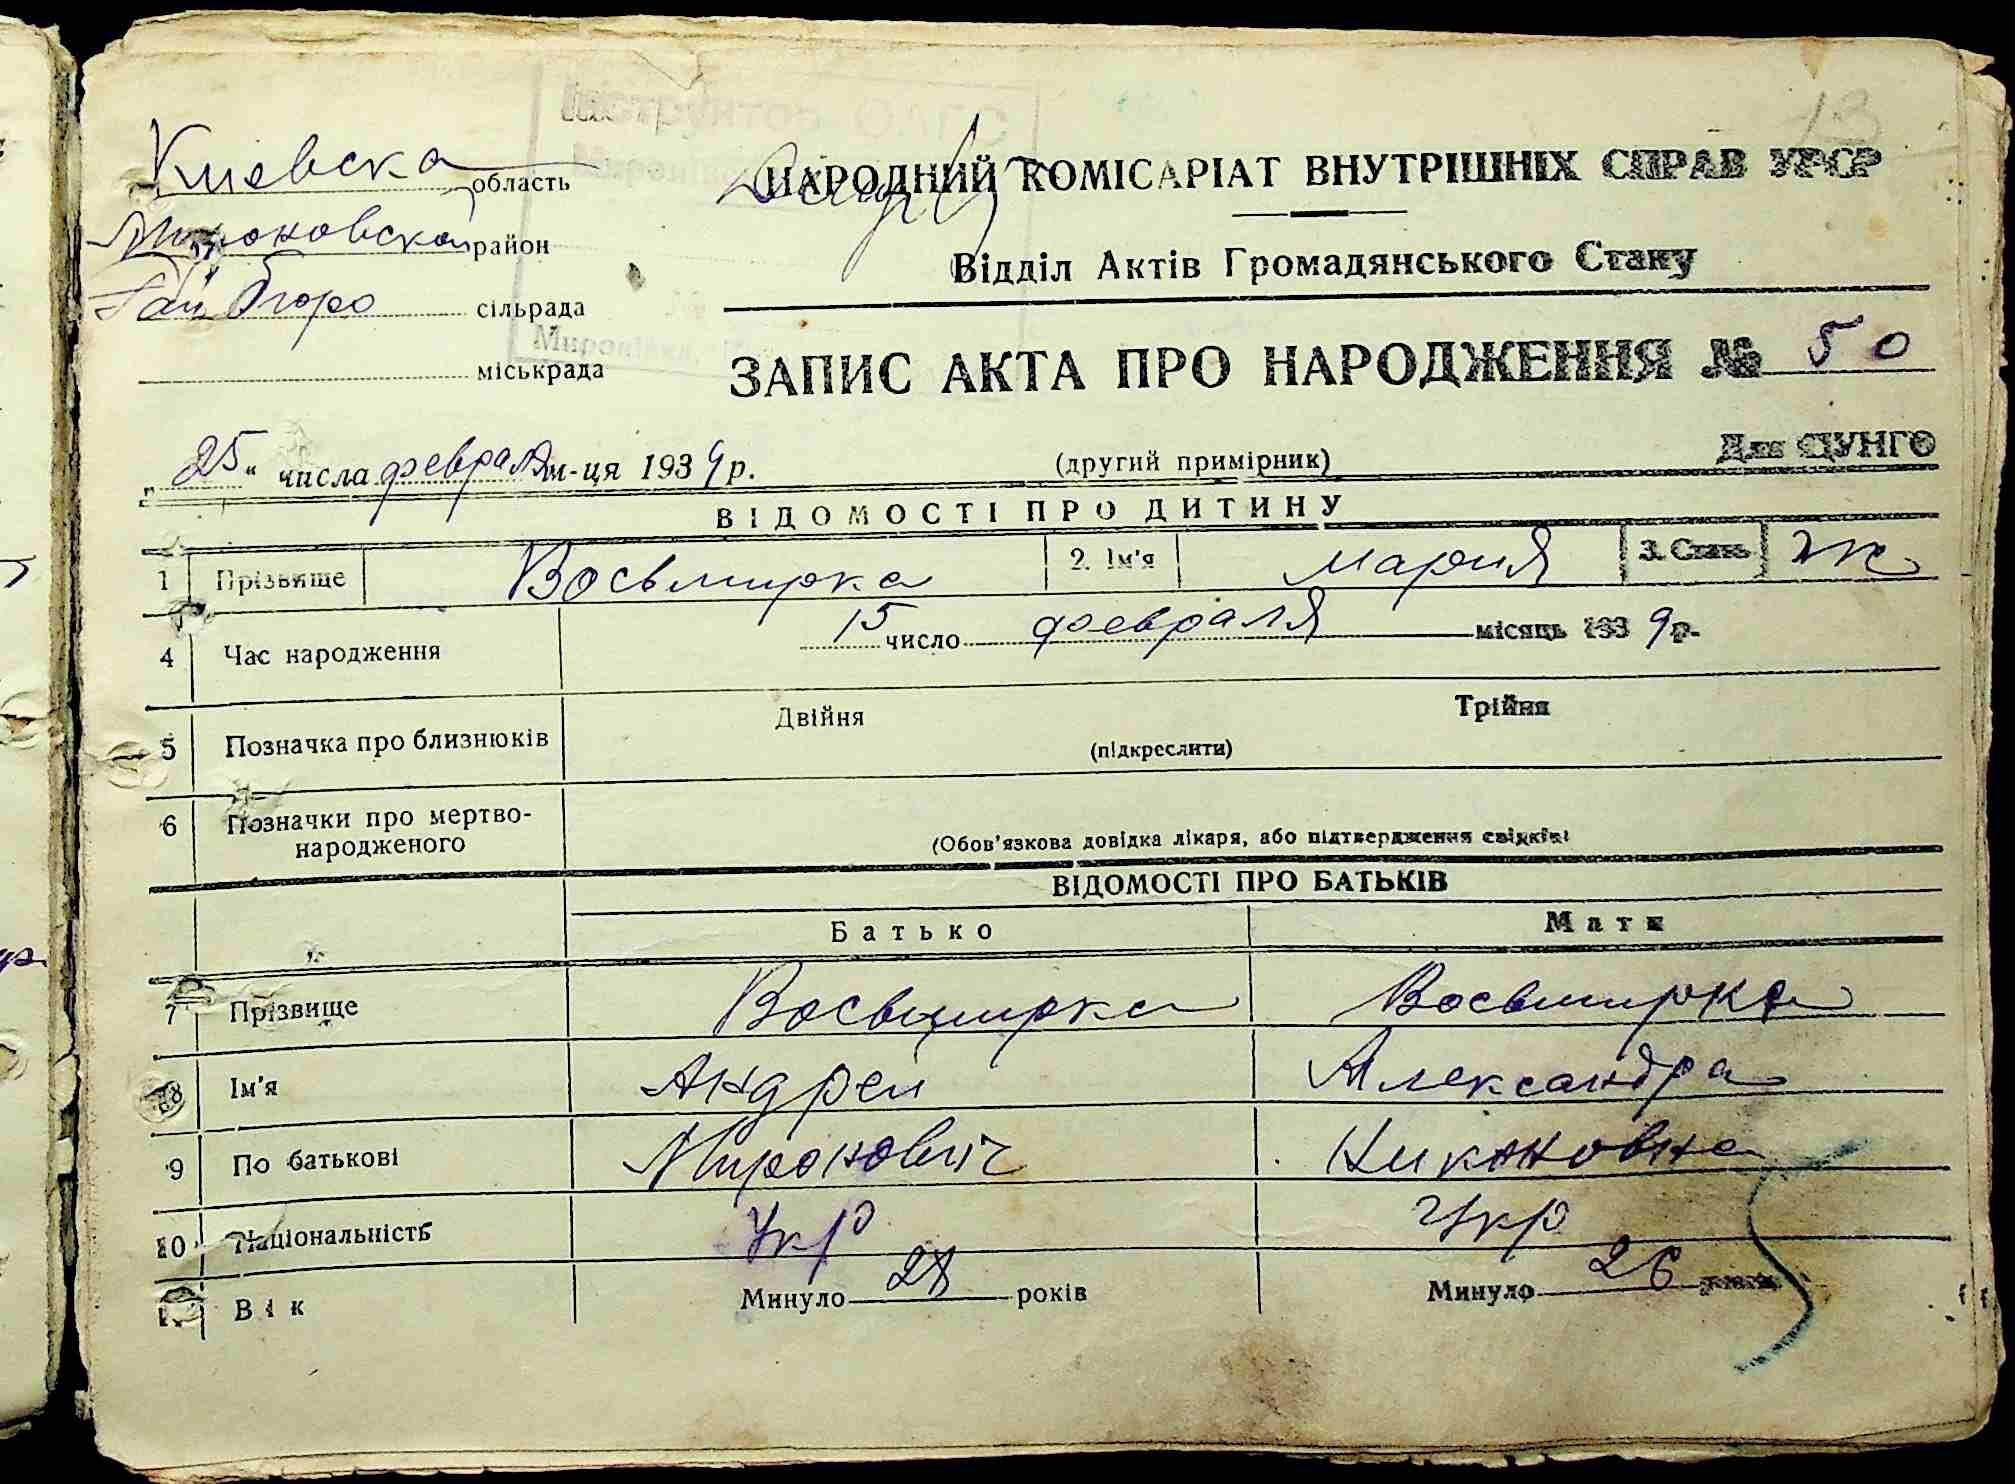 13
Інструктор ОАГС
Киевска область
НАРОДНИЙ КОМІСАРІАТ ВНУТРІШНІХ СПРАВ УРСР
Мироновской район
Відділ Актів Громадянського Стану
Рай бюро сільрада
міськрада
ЗАПИС АКТА ПРО НАРОДЖЕННЯ № 50
„25" числа февраля м-ця 1939 р. (другий примірник) Для ЦУНГО
ВІДОМОСТІ ПРО ДИТИНУ
1 Прізвище Восьмирка 2. Ім'я Мария 3. Стать ж
4 Час народження 15 число февраля місяць 1939 р.
5 Позначка про близнюків Двійня Трійня
(підкреслити)
6 Позначки про мертво-
народженого (Обов'язкова довідка лікаря, або підтвердження свідків)
ВІДОМОСТІ ПРО БАТЬКІВ
Батько Мати
7 Прізвище Восьмирка Восьмирка
8 Ім'я Андрей Александра
9 По батькові Миронович Никоновна
10 Національність Укр Укр
11 Вік Минуло 28 років Минуло 26 років